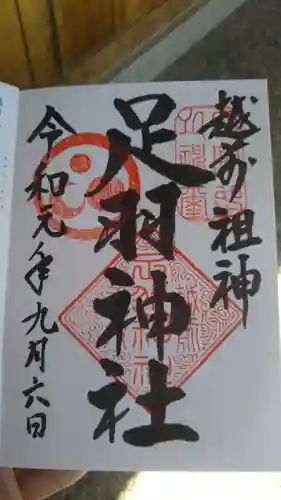 越前祖神
足羽神社
令和元年九月六日